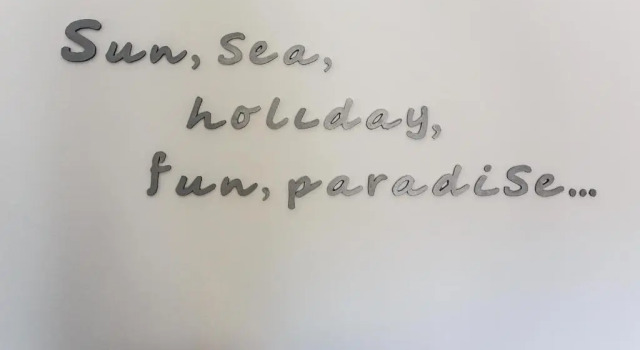 Sun, Sea,
holiday,
fun, paradise...